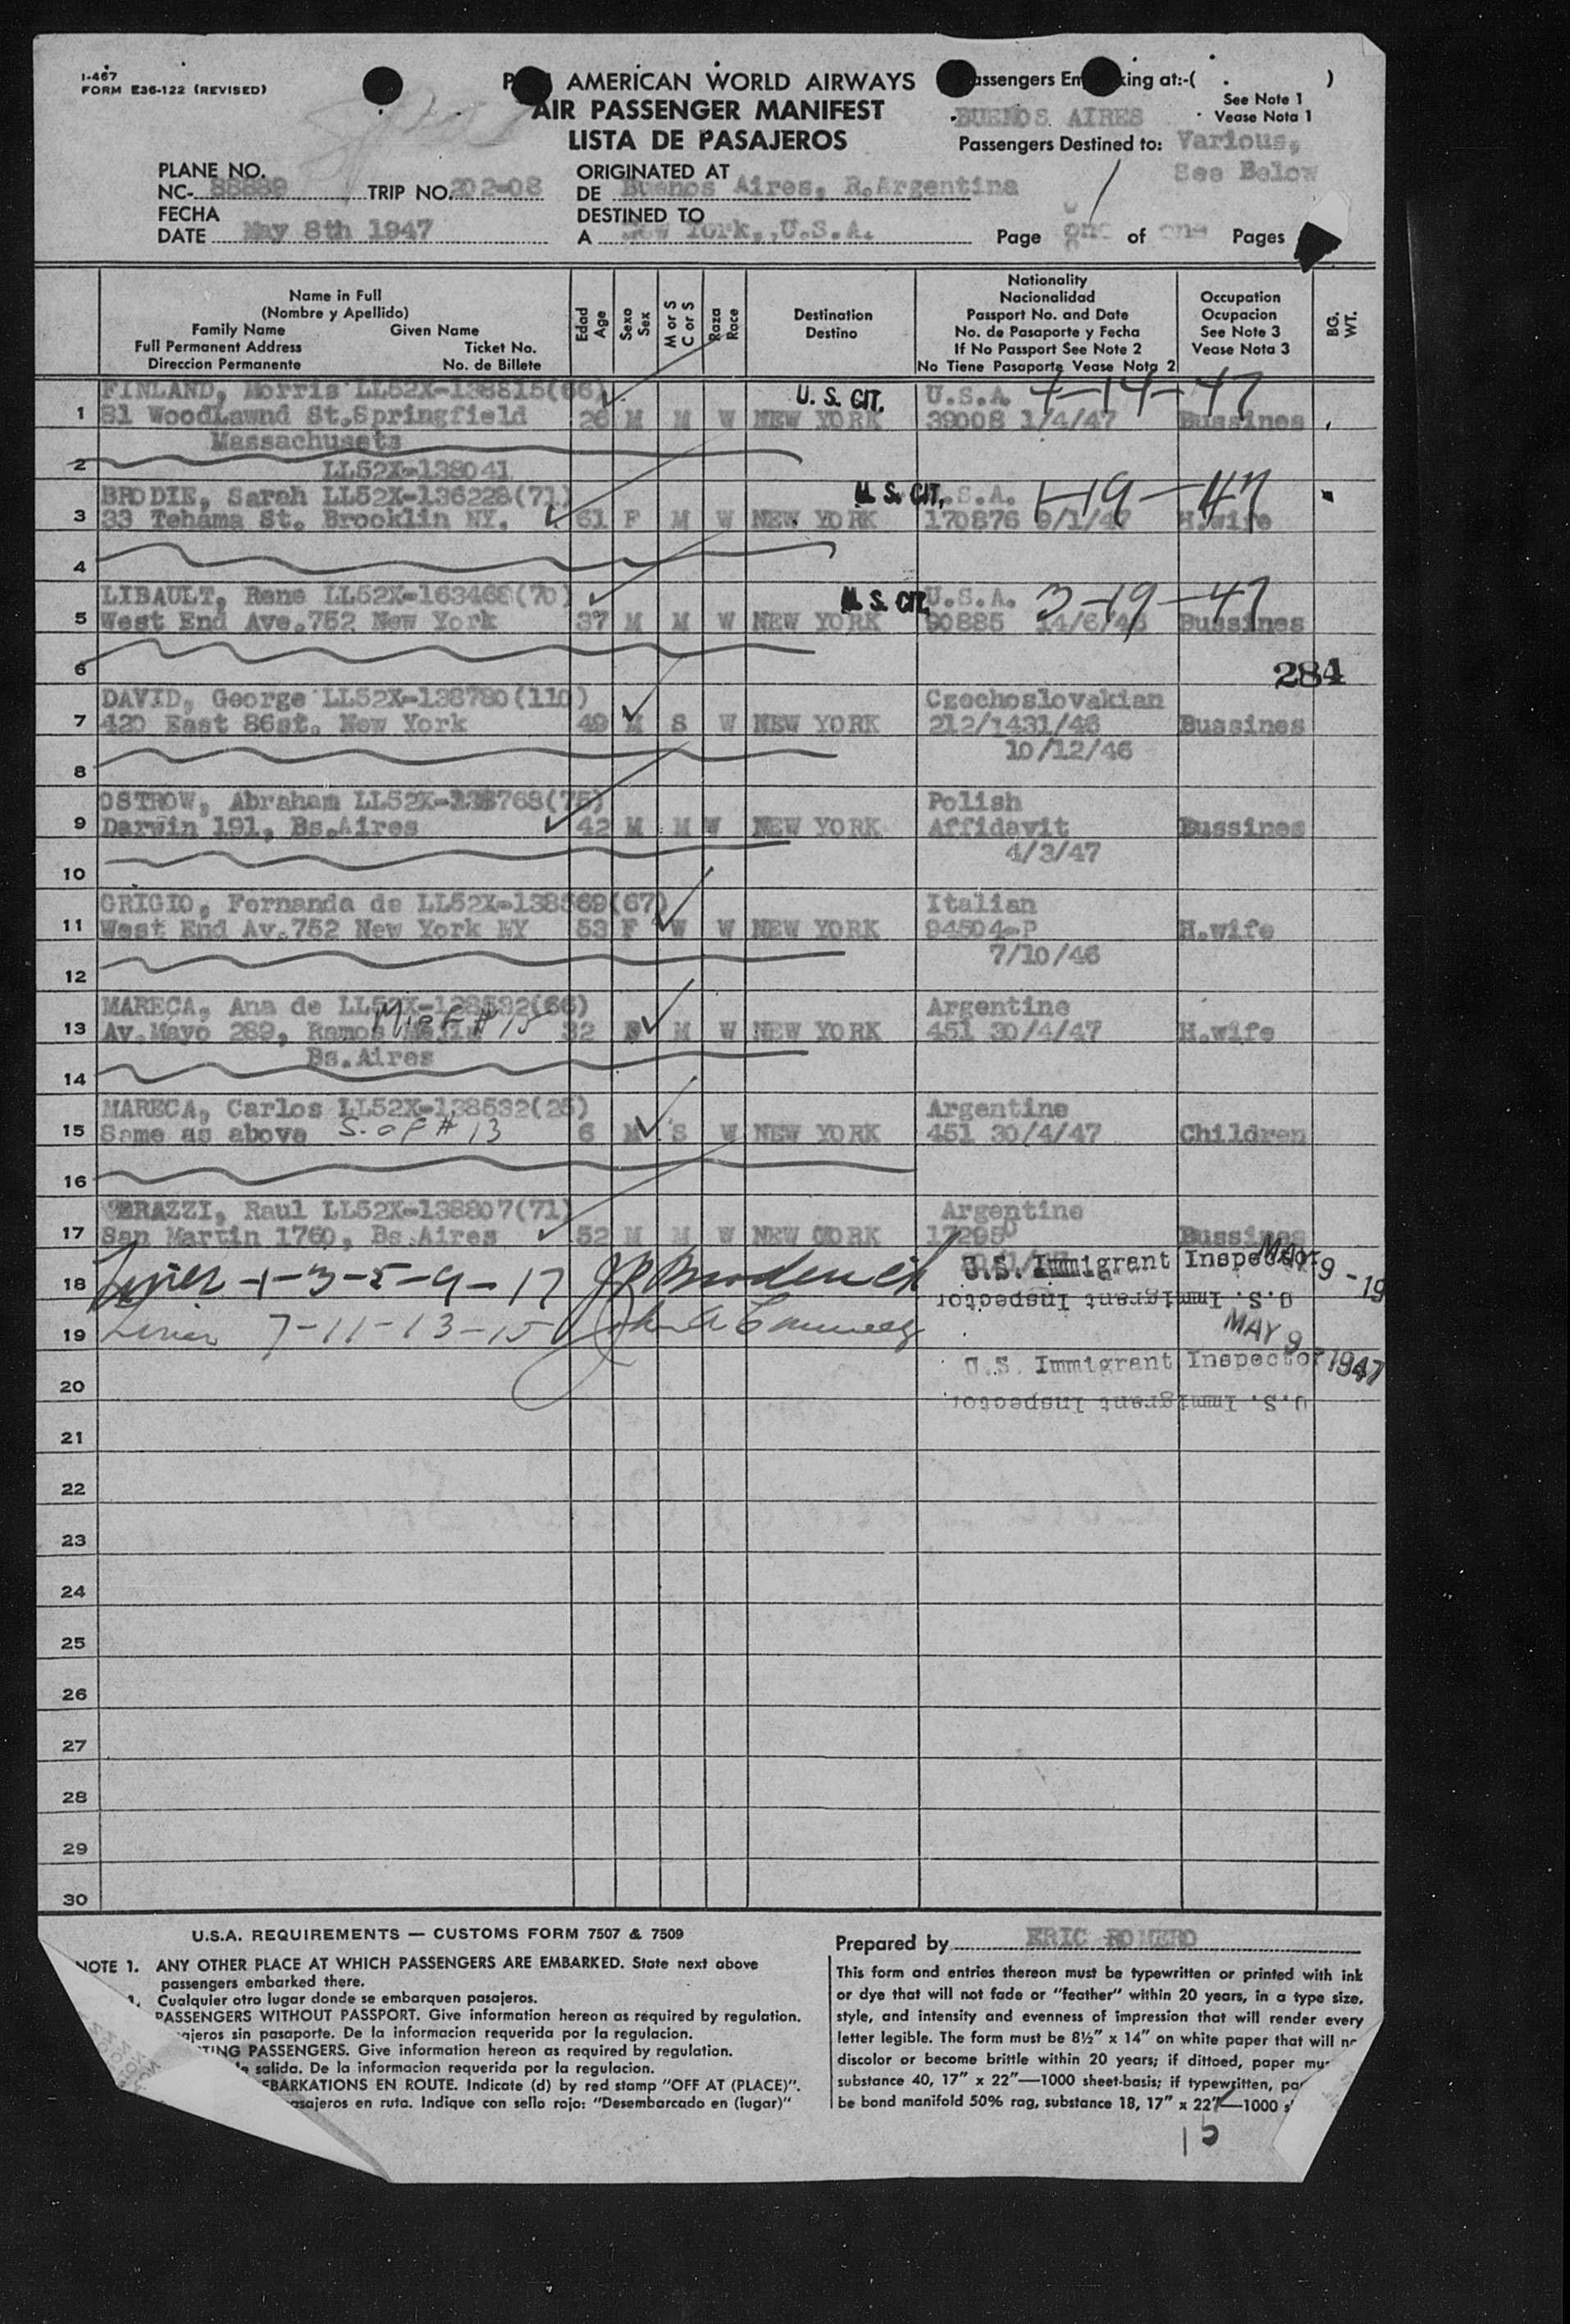 I-467
FORM E36-122 (REVISED)
AMERICAN WORLD AIRWAYS
AIR PASSENGER MANIFEST
LISTA DE PASAJEROS
assengers Em king at:-( )
See Note 1
Vease Nota 1
BUENOS AIRES
Passengers Destined to: Various,
See Below
PLANE NO.
NC- 88889 TRIP NO. 202-08
ORIGINATED AT
DE Buenos Aires, R.Argentina
FECHA
DATE May 8th 1947
DESTINED TO
A New York,,U.S.A.
Page one of one Pages
Name in Full
(Nombre y Apellido)
Family Name Given Name
Full Permanent Address Ticket No.
Direccion Permanente No. de Billete
Edad Age
Sexo Sex
M or S C or S
Raza Race
Destination
Destino
Nationality
Nacionalidad
Passport No. and Date
No. de Pasaporte y Fecha
If No Passport See Note 2
No Tiene Pasaporte Vease Nota 2
Occupation
Ocupacion
See Note 3
Vease Nota 3
BG. WT.
FINLAND, Morris LL52X-138815(66) U. S. CIT. U.S.A. 4-14-47
1 81 WoodLawnd St.Springfield 26 M M W NEW YORK 39008 1/4/47 Bussines
Massachusets
2
LL52X-138041
BRODIE, Sarah LL52X-136228(71) U. S. CIT. S.A. 1-19-47
3 33 Tehama St. Brooklin NY. 61 F M W NEW YORK 170876 9/1/47 H.wife
4
LIBAULT, Rene LL52X-163468(70) U. S. CIT. U.S.A. 3-19-47
5 West End Ave.752 New York 37 M M W NEW YORK 90885 14/6/46 Bussines
6 284
DAVID, George LL52X-138780(110) Czechoslovakian
7 420 East 86st. New York 49 M S W NEW YORK 212/1431/46 Bussines
10/12/46
8
OSTROW, Abraham LL52X-138768(75) Polish
9 Darwin 191, Bs.Aires 42 M M W NEW YORK Affidavit Bussines
4/3/47
10
GRIGIO, Fernanda de LL52X-138569(67) Italian
11 West End Av.752 New York NY 53 F W W NEW YORK 94504-P H.wife
7/10/46
12
MARECA, Ana de LL52X-138532(66) Argentine
13 Av.Mayo 289, Ramos Mejia M. of # 15 32 F M W NEW YORK 451 30/4/47 H.wife
Bs.Aires
14
MARECA, Carlos LL52X-138532(25) Argentine
15 Same as above S. of # 13 6 M S W NEW YORK 451 30/4/47 Children
16
ERAZZI, Raul LL52X-138807(71) Argentine
17 San Martin 1760, Bs.Aires 52 M M W NEW YORK 17295 Bussines
18 Lines 1-3-5-9-17 U.S. Immigrant Inspector MAY 9 - 19
U.S. Immigrant Inspector
19 Lines 7-11-13-15 MAY 9 1947
U.S. Immigrant Inspector
20 U.S. Immigrant Inspector
21
22
23
24
25
26
27
28
29
30
U.S.A. REQUIREMENTS — CUSTOMS FORM 7507 & 7509
NOTE 1. ANY OTHER PLACE AT WHICH PASSENGERS ARE EMBARKED. State next above
passengers embarked there.
1. Cualquier otro lugar donde se embarquen pasajeros.
PASSENGERS WITHOUT PASSPORT. Give information hereon as required by regulation.
ajeros sin pasaporte. De la informacion requerida por la regulacion.
TING PASSENGERS. Give information hereon as required by regulation.
salida. De la informacion requerida por la regulacion.
EBARKATIONS EN ROUTE. Indicate (d) by red stamp "OFF AT (PLACE)".
asajeros en ruta. Indique con sello rojo: "Desembarcado en (lugar)"
Prepared by ERIC ROMERO
This form and entries thereon must be typewritten or printed with ink
or dye that will not fade or "feather" within 20 years, in a type size,
style, and intensity and evenness of impression that will render every
letter legible. The form must be 8½" x 14" on white paper that will no
discolor or become brittle within 20 years; if dittoed, paper mus
substance 40, 17" x 22"—1000 sheet-basis; if typewritten, pa
be bond manifold 50% rag, substance 18, 17" x 22"—1000 s
15